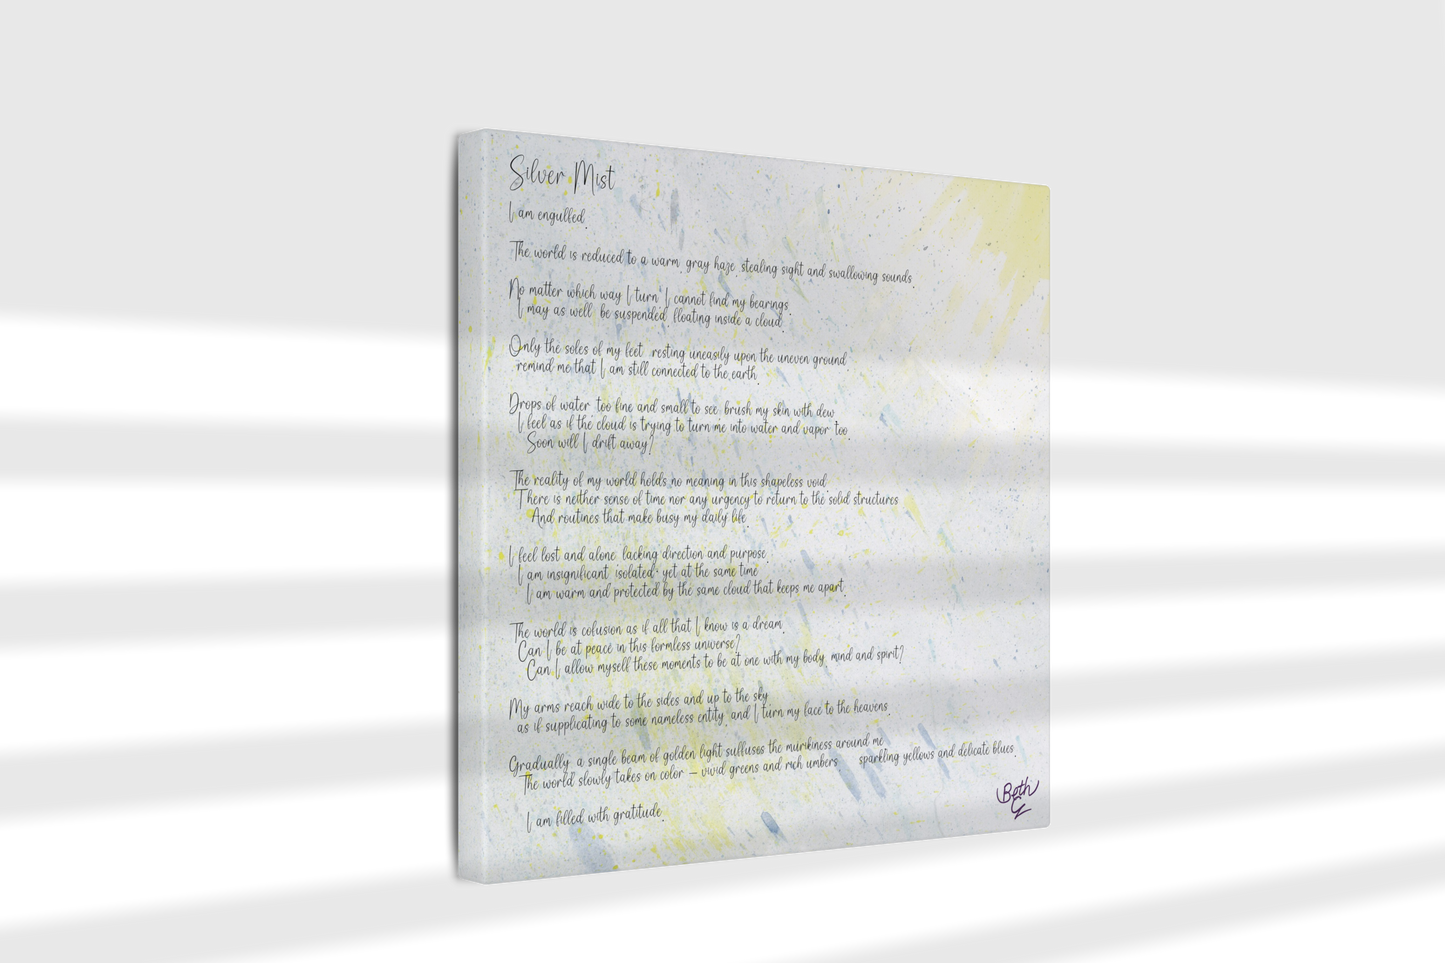 Silver Mist
I am engulfed.
The world is reduced to a warm, gray haze, stealing sight and swallowing sounds.
No matter which way I turn, I cannot find my bearings.
I may as well be suspended, floating inside a cloud.
Only the soles of my feet, resting uneasily upon the uneven ground
remind me that I am still connected to the earth.
Drops of water, too fine and small to see, brush my skin with dew
I feel as if the cloud is trying to turn me into water and vapor, too.
Soon will I drift away?
The reality of my world holds no meaning in this shapeless void.
There is neither sense of time nor any urgency to return to the solid structures
And routines that make busy my daily life.
I feel lost and alone, lacking direction and purpose
I am insignificant, isolated, yet at the same time
I am warm and protected by the same cloud that keeps me apart.
The world is cofusion as if all that I know is a dream.
Can I be at peace in this formless universe?
Can I allow myself these moments to be at one with my body, mind and spirit?
My arms reach wide to the sides and up to the sky
as if supplicating to some nameless entity, and I turn my face to the heavens.
Gradually, a single beam of golden light suffuses the murikiness around me
The world slowly takes on color – vivid greens and rich umbers sparkling yellows and delicate blues.
I am filled with gratitude.
Beth G